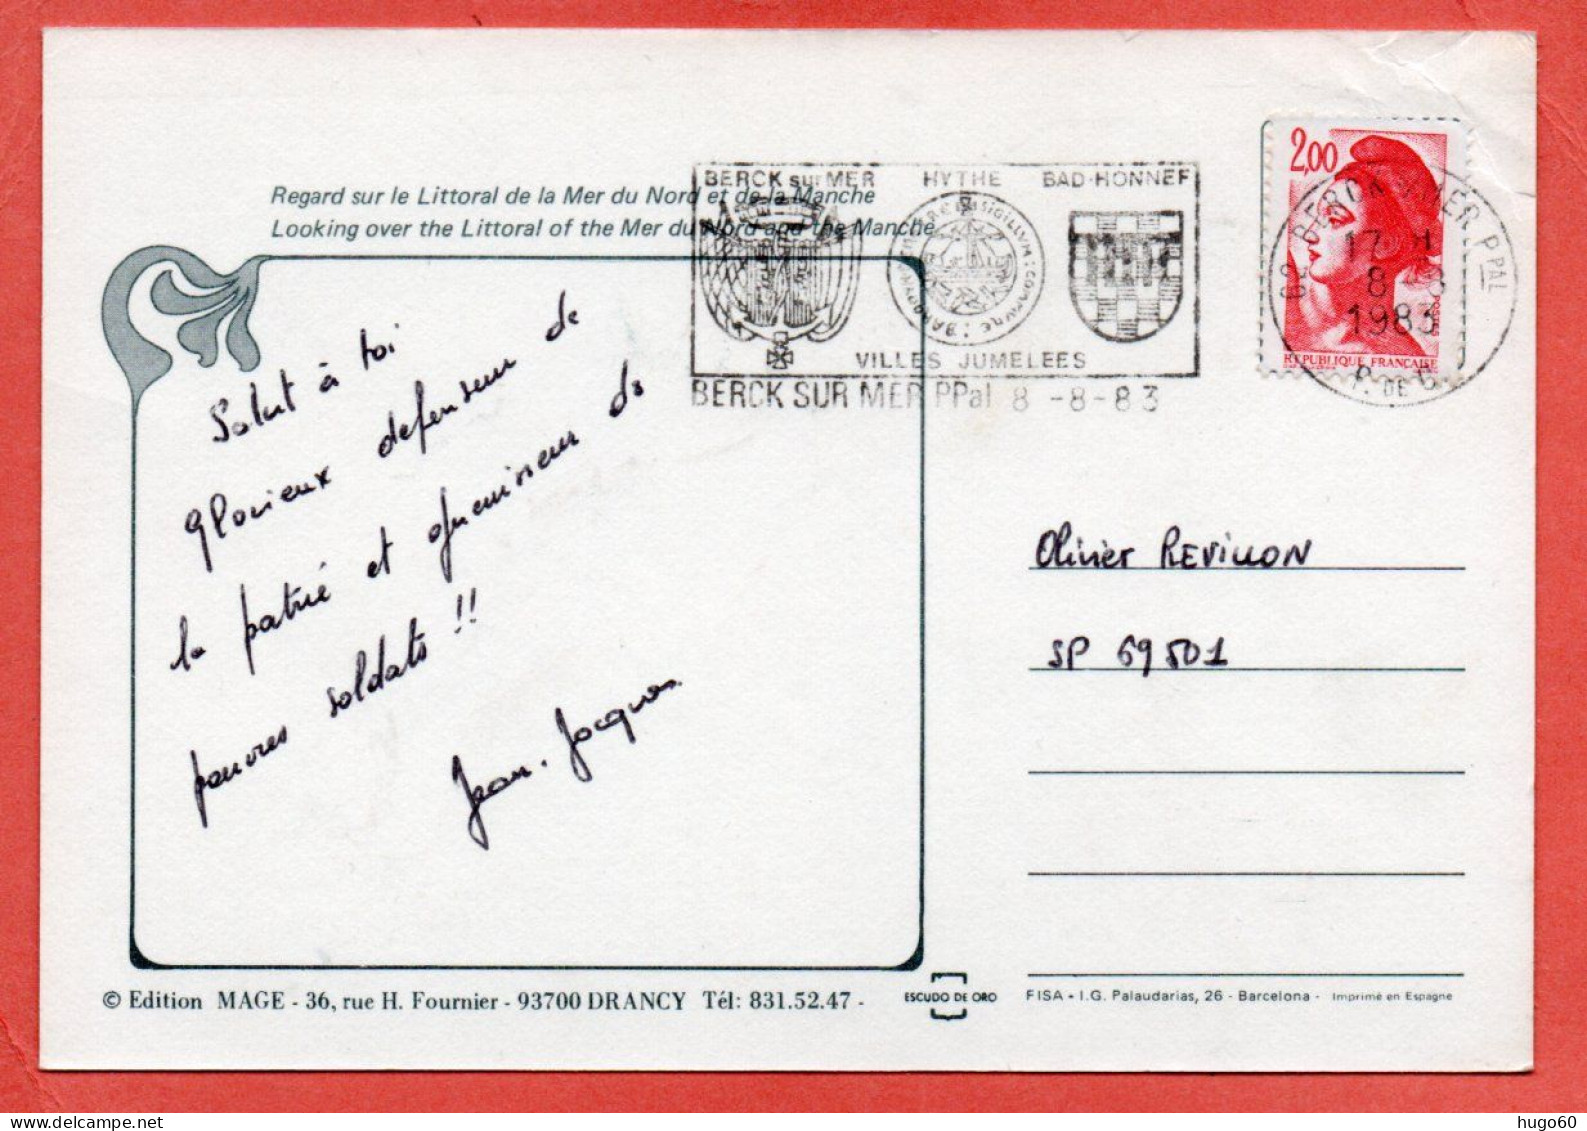 Regard sur le Littoral de la Mer du Nord et de la Manche
Looking over the Littoral of the Mer du Nord and the Manche
BERCK sur MER HYTHE BAD-HONNEF
VILLES JUMELEES
BERCK SUR MER PPal 8 -8-83
2,00
RÉPUBLIQUE FRANÇAISE
62 BERCK S/ MER PPAL
17
8
1983
P. DE C.
Salut à toi
glorieux defenseur de
la patrie et
pauvres soldats !!
Jean-Jacques
Olivier REVILLON
SP 69501
© Edition MAGE - 36, rue H. Fournier - 93700 DRANCY Tél: 831.52.47 -
ESCUDO DE ORO
FISA - I.G. Palaudarias, 26 - Barcelona - Imprimé en Espagne
www.delcampe.net
hugo60